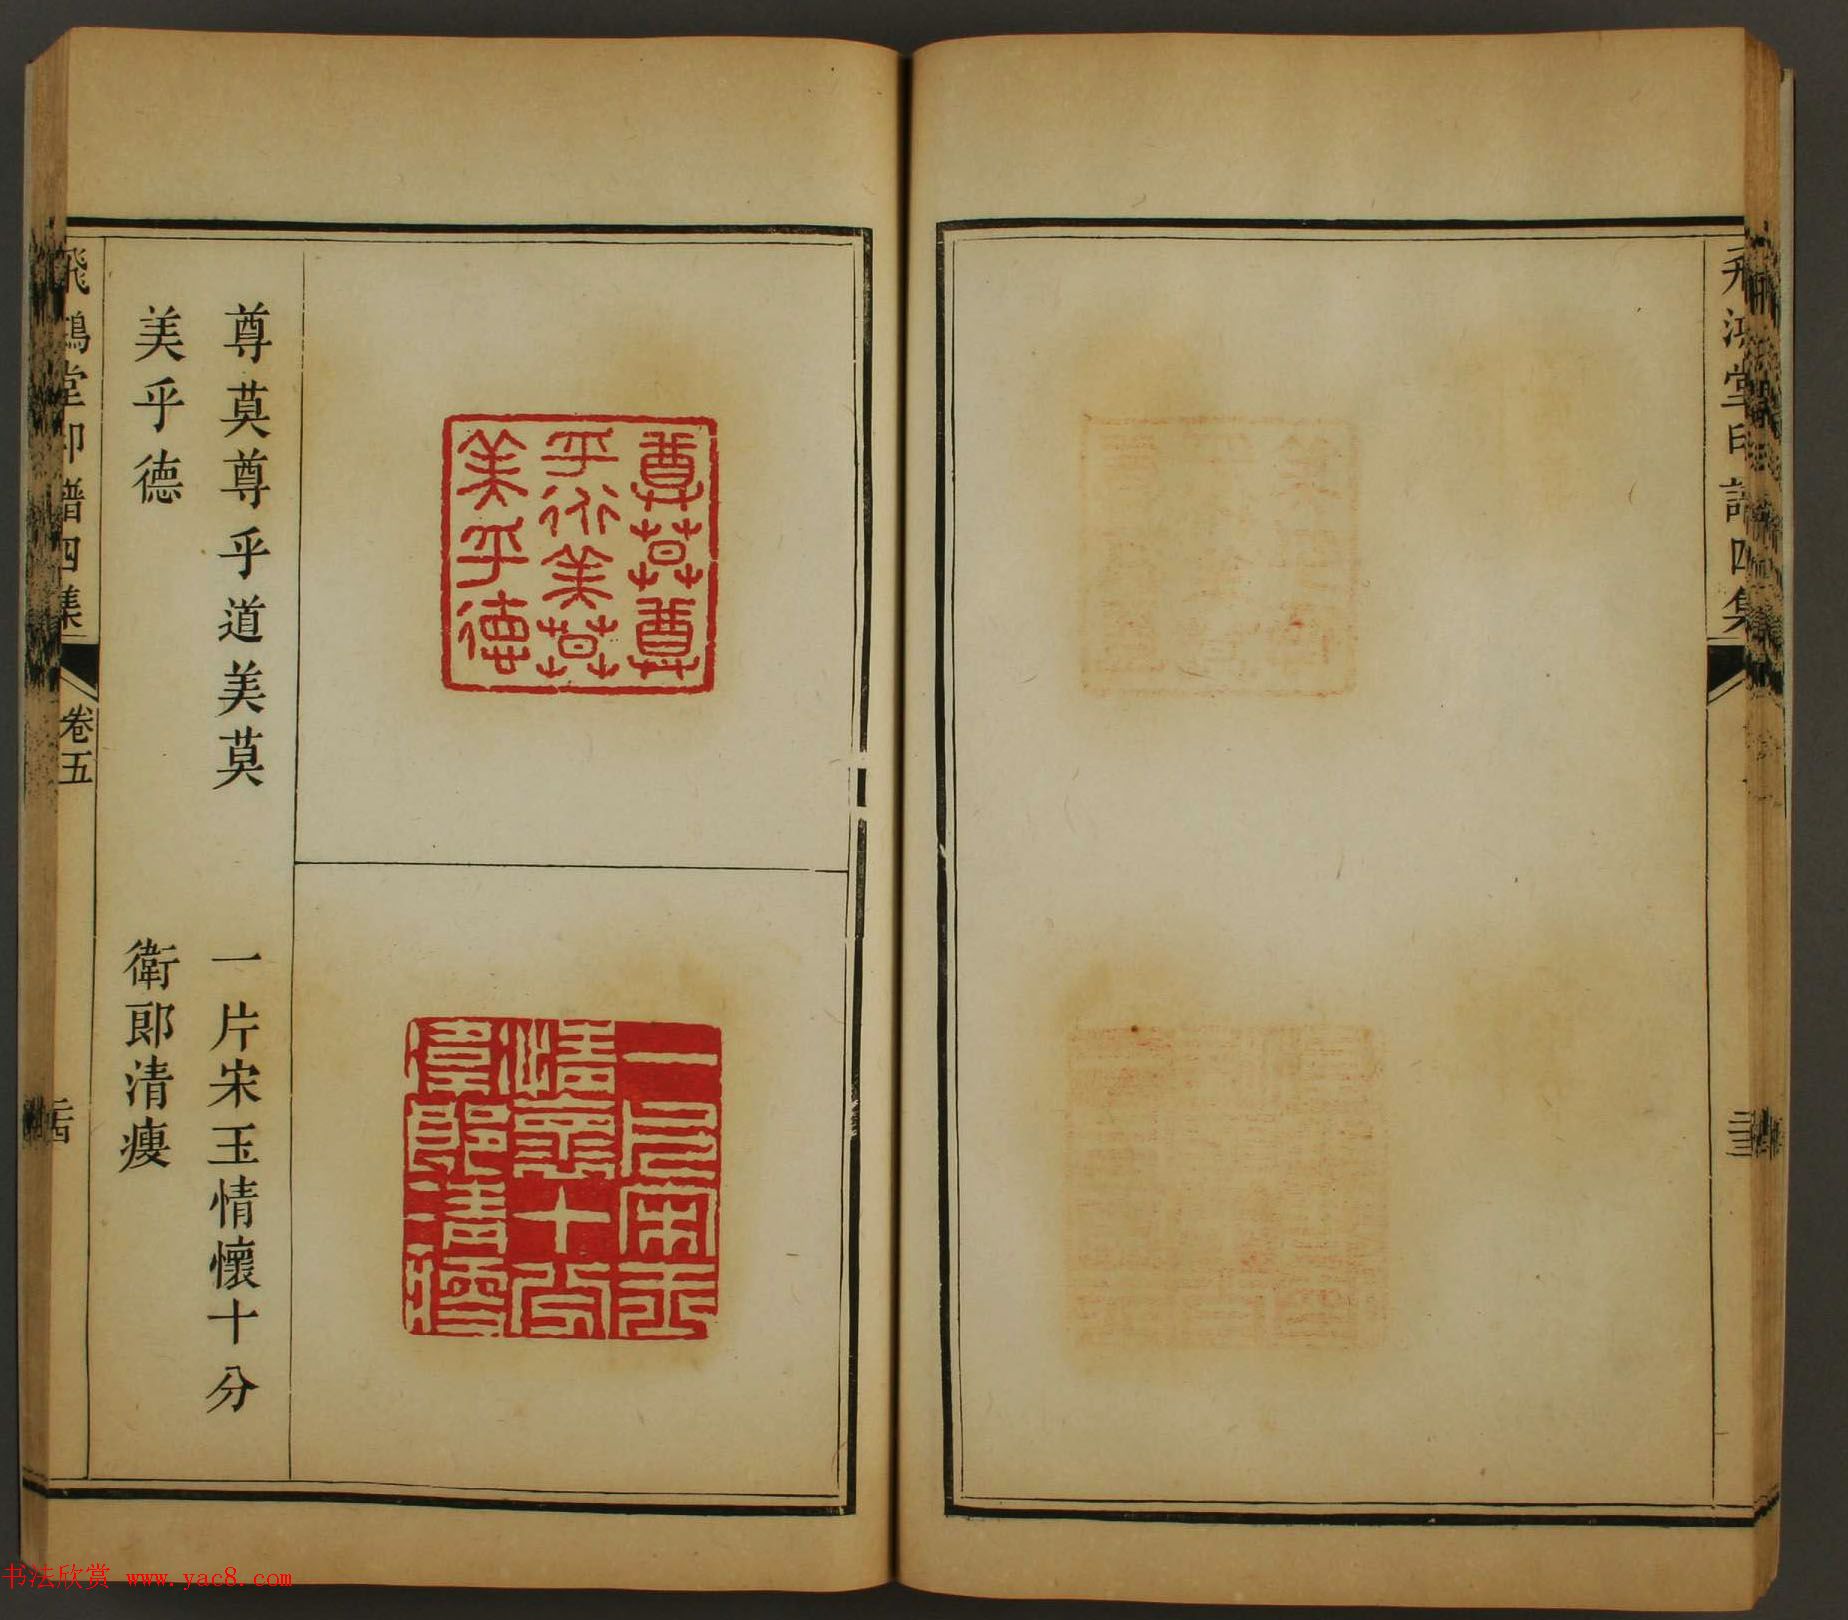 飛鴻堂印譜四集
尊莫尊乎道美莫
美乎德
一片宋玉情懷十分
衛郎清瘦
尊莫尊
乎道美莫
美乎德
一片宋玉
情懷十分
衛郎清瘦
飛鴻堂印譜四集
卷五
书法欣赏 www.yac8.com